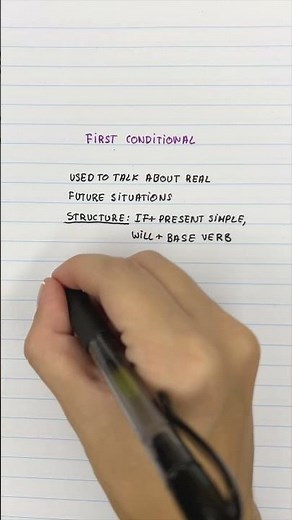 FIRST CONDITIONAL
USED TO TALK ABOUT REAL
FUTURE SITUATIONS
STRUCTURE: IF+ PRESENT SIMPLE,
WILL + BASE VERB